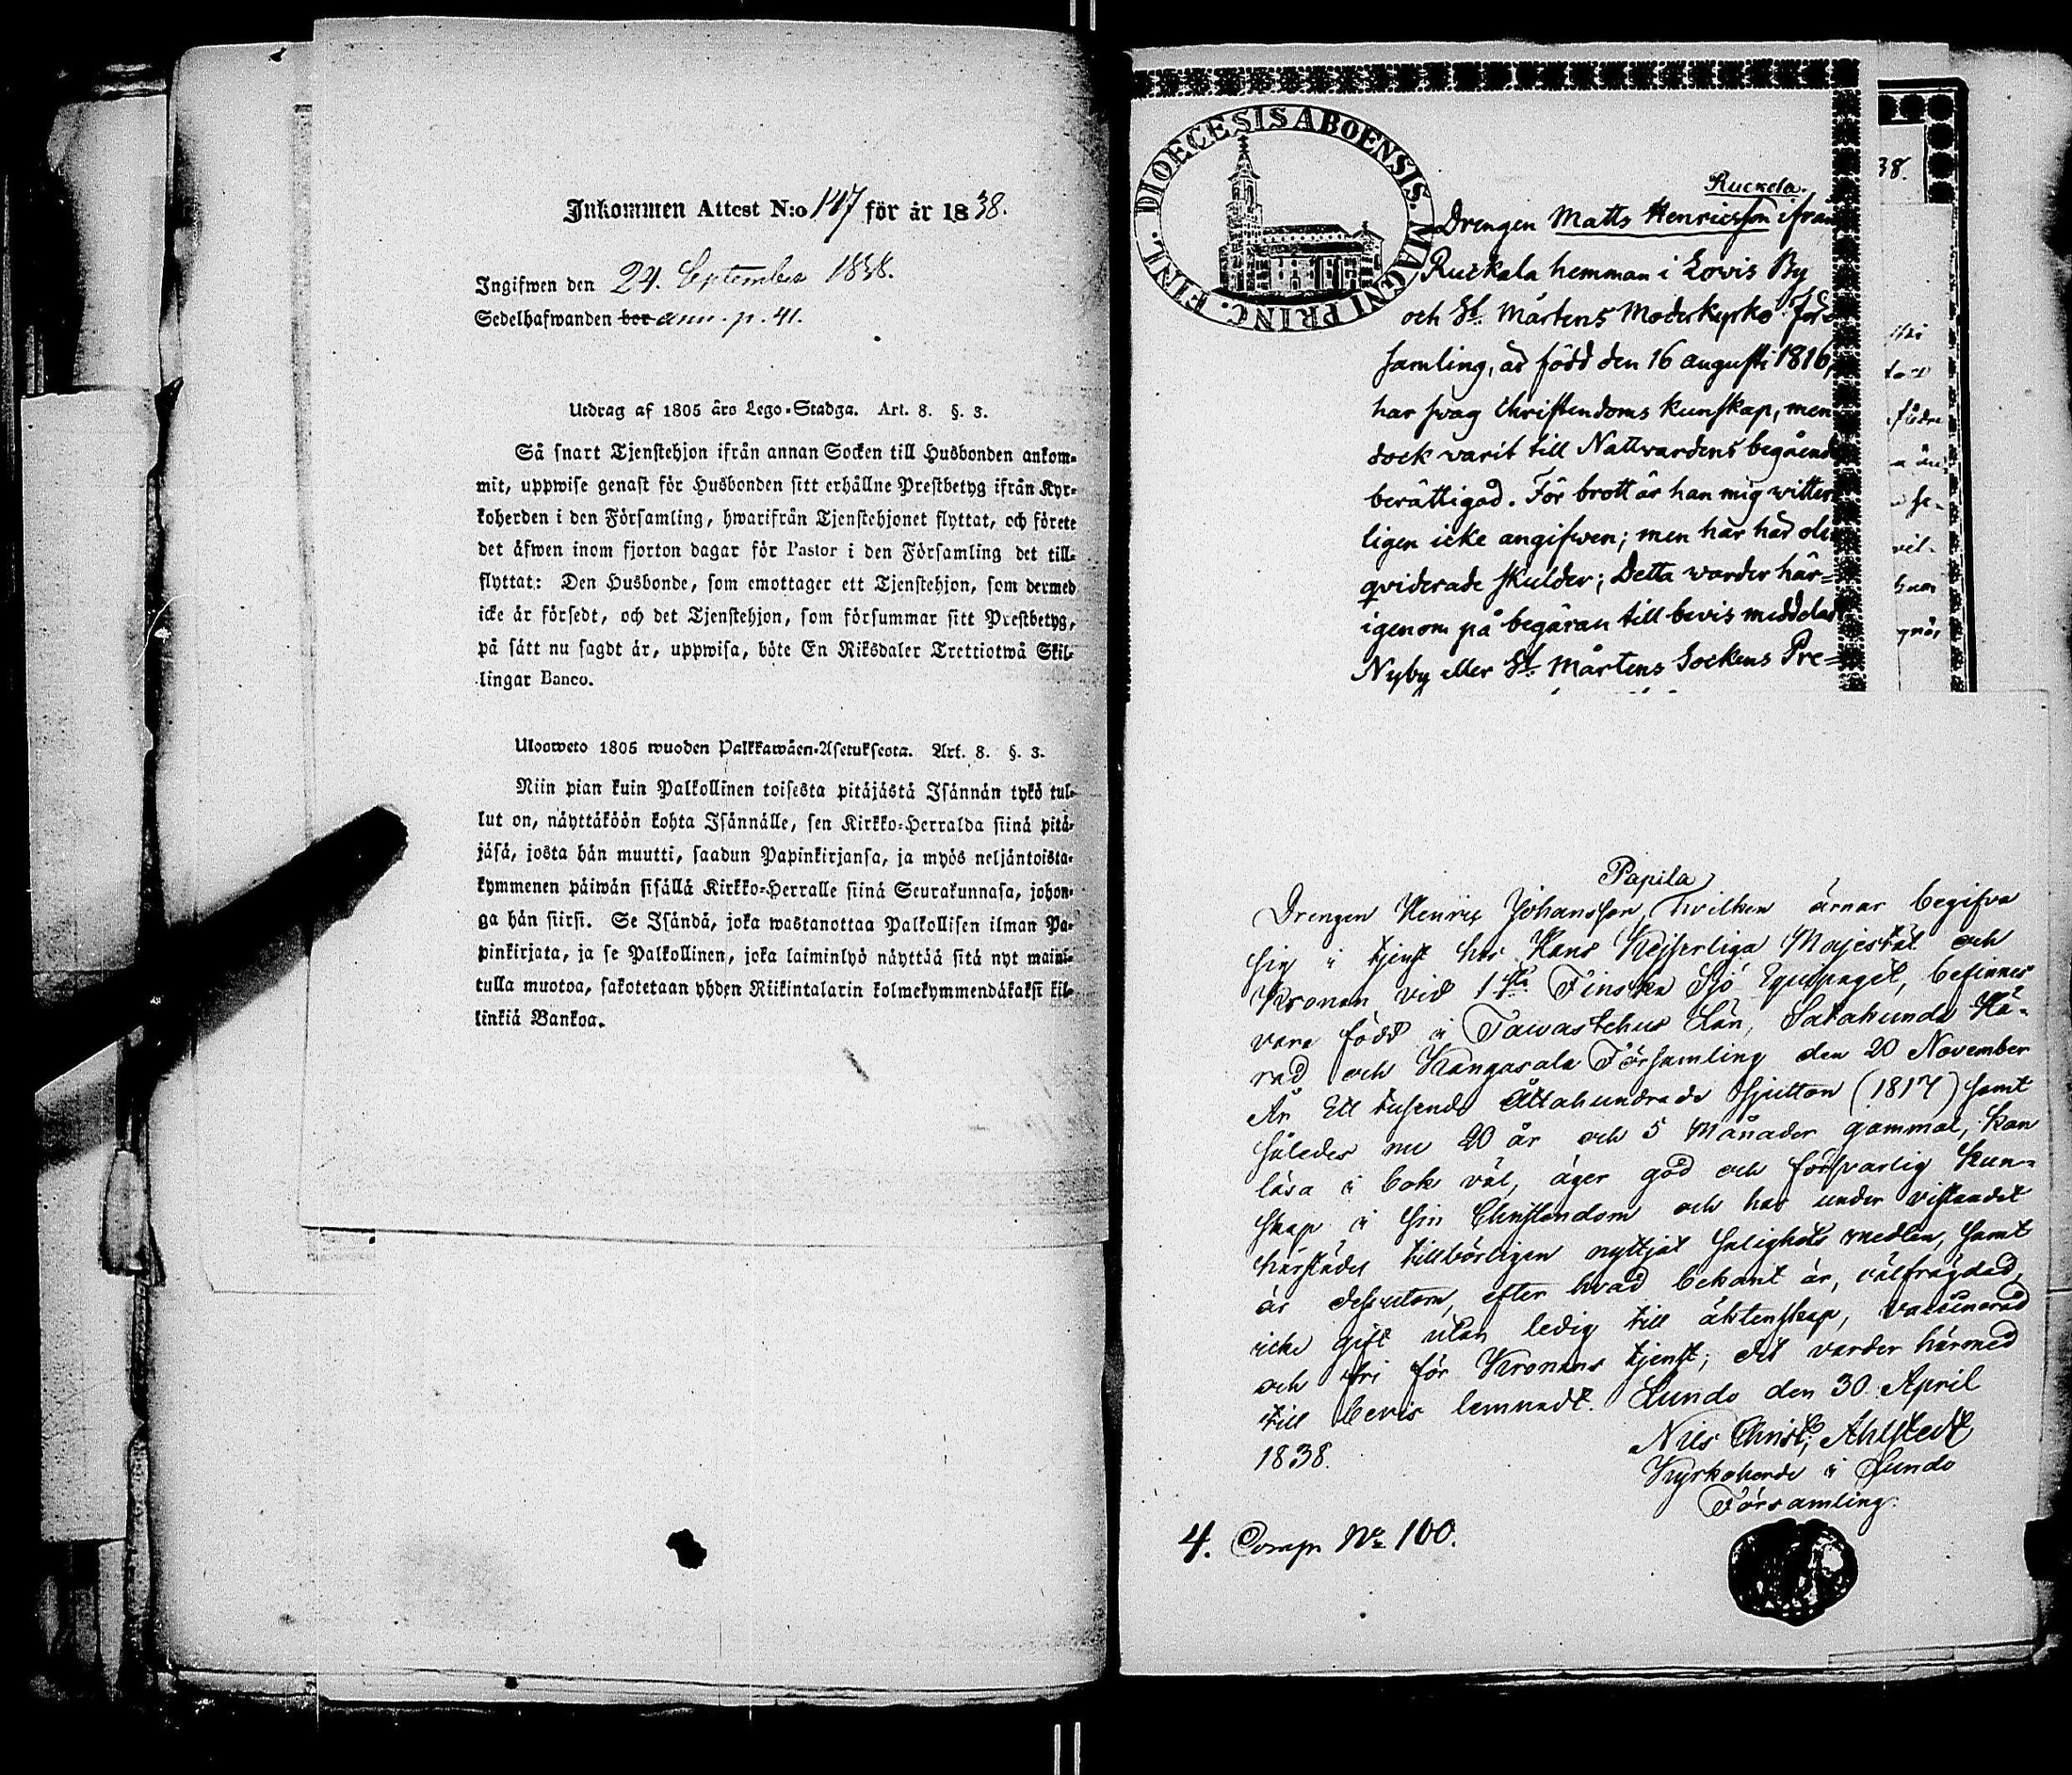 Inkommen Attest N:o 147 för år 1838.
Ingifwen den 24. September 1838.
Sedelhafwanden bor ann. p. 41.
Utdrag af 1805 års Lego-Stadga. Art. 8. §. 3.
Så snart Tjenstehjon ifrån annan Socken till Husbonden ankom-
mit, uppwise genast för Husbonden sitt erhållne Prestbetyg ifrån Kyr-
koherden i den Församling, hwarifrån Tjenstehjonet flyttat, och förete
det äfwen inom fjorton dagar för Pastor i den Församling det till-
flyttat: Den Husbonde, som emottager ett Tjenstehjon, som dermed
icke är försedt, och det Tjenstehjon, som försummar sitt Prestbetyg,
på sätt nu sagdt är, uppwisa, böte En Riksdaler Trettiotwå Skil-
lingar Banco.
Ulosweto 1805 wuoden Palkkawäen-Asetuksesta. Art. 8. §. 3.
Niin pian kuin Palkollinen toisesta pitäjästä Isännän tykö tul-
lut on, näyttäköön kohta Isännälle, sen Kirkko-Herralda siinä pitä-
jäsä, josta hän muutti, saadun Papinkirjansa, ja myös neljäntoista-
kymmenen päiwän sisällä Kirkko-Herralle siinä Seurakunnasa, johon-
ga hän siirsi. Se Isändä, joka wastanottaa Palkollisen ilman Pa-
pinkirjata, ja se Palkollinen, joka laiminlyö näyttää sitä nyt maini-
tulla muotoa, sakotetaan yhden Riikintalarin kolmekymmendäkaksi kil-
linkiä Bankoa.
DIOECESIS ABOENSIS. MAGNI PRINC. FINL.
Ruckela.
Drengen Matts Henricsson ifrån
Ruckala hemman i Lovis By
och St. Mårtens Moderkyrko För-
samling, är född den 16 augusti 1816,
har svag Christendoms kunskap, men
dock varit till Nattvardens begående
berättigad. För brott är han mig witter-
ligen icke angifwen; men har här oli-
qviderade skulder; Detta warder här-
igenom på begäran till bevis meddelat
Nyby eller St. Mårtens Sockens Pre-
38.
Papila
Drengen Henric Johansson, hvilken ärnar begifva
sig i tjenst hos Hans Kejserliga Majestät och
Kronan vid 1sta Finska Sjö Equipaget, befinnes
vara född i Tawastehus Län, Satakunda Hä-
rad och Kangasala Församling den 20 November
År Ett tusende Åttahundrade Sjutton (1817) samt
således nu 20 år och 5 Månader gammal, kan
läsa i bok väl, äger god och försvarlig Kun-
skap i sin Christendom och har under vistandet
härstädes tillbörligen nyttjat salighets medlen, samt
är dessutom, efter hvad bekant är, välfrägdad,
icke gift utan ledig till äktenskap, vaccinerad
och fri för Kronans tjenst; det varder härmed
till bevis lemnadt. Lundo den 30 April
1838.
Nils Christ. Ahlstedt
Kyrkoherde i Lundo
Församling.
4. Comp No 100.